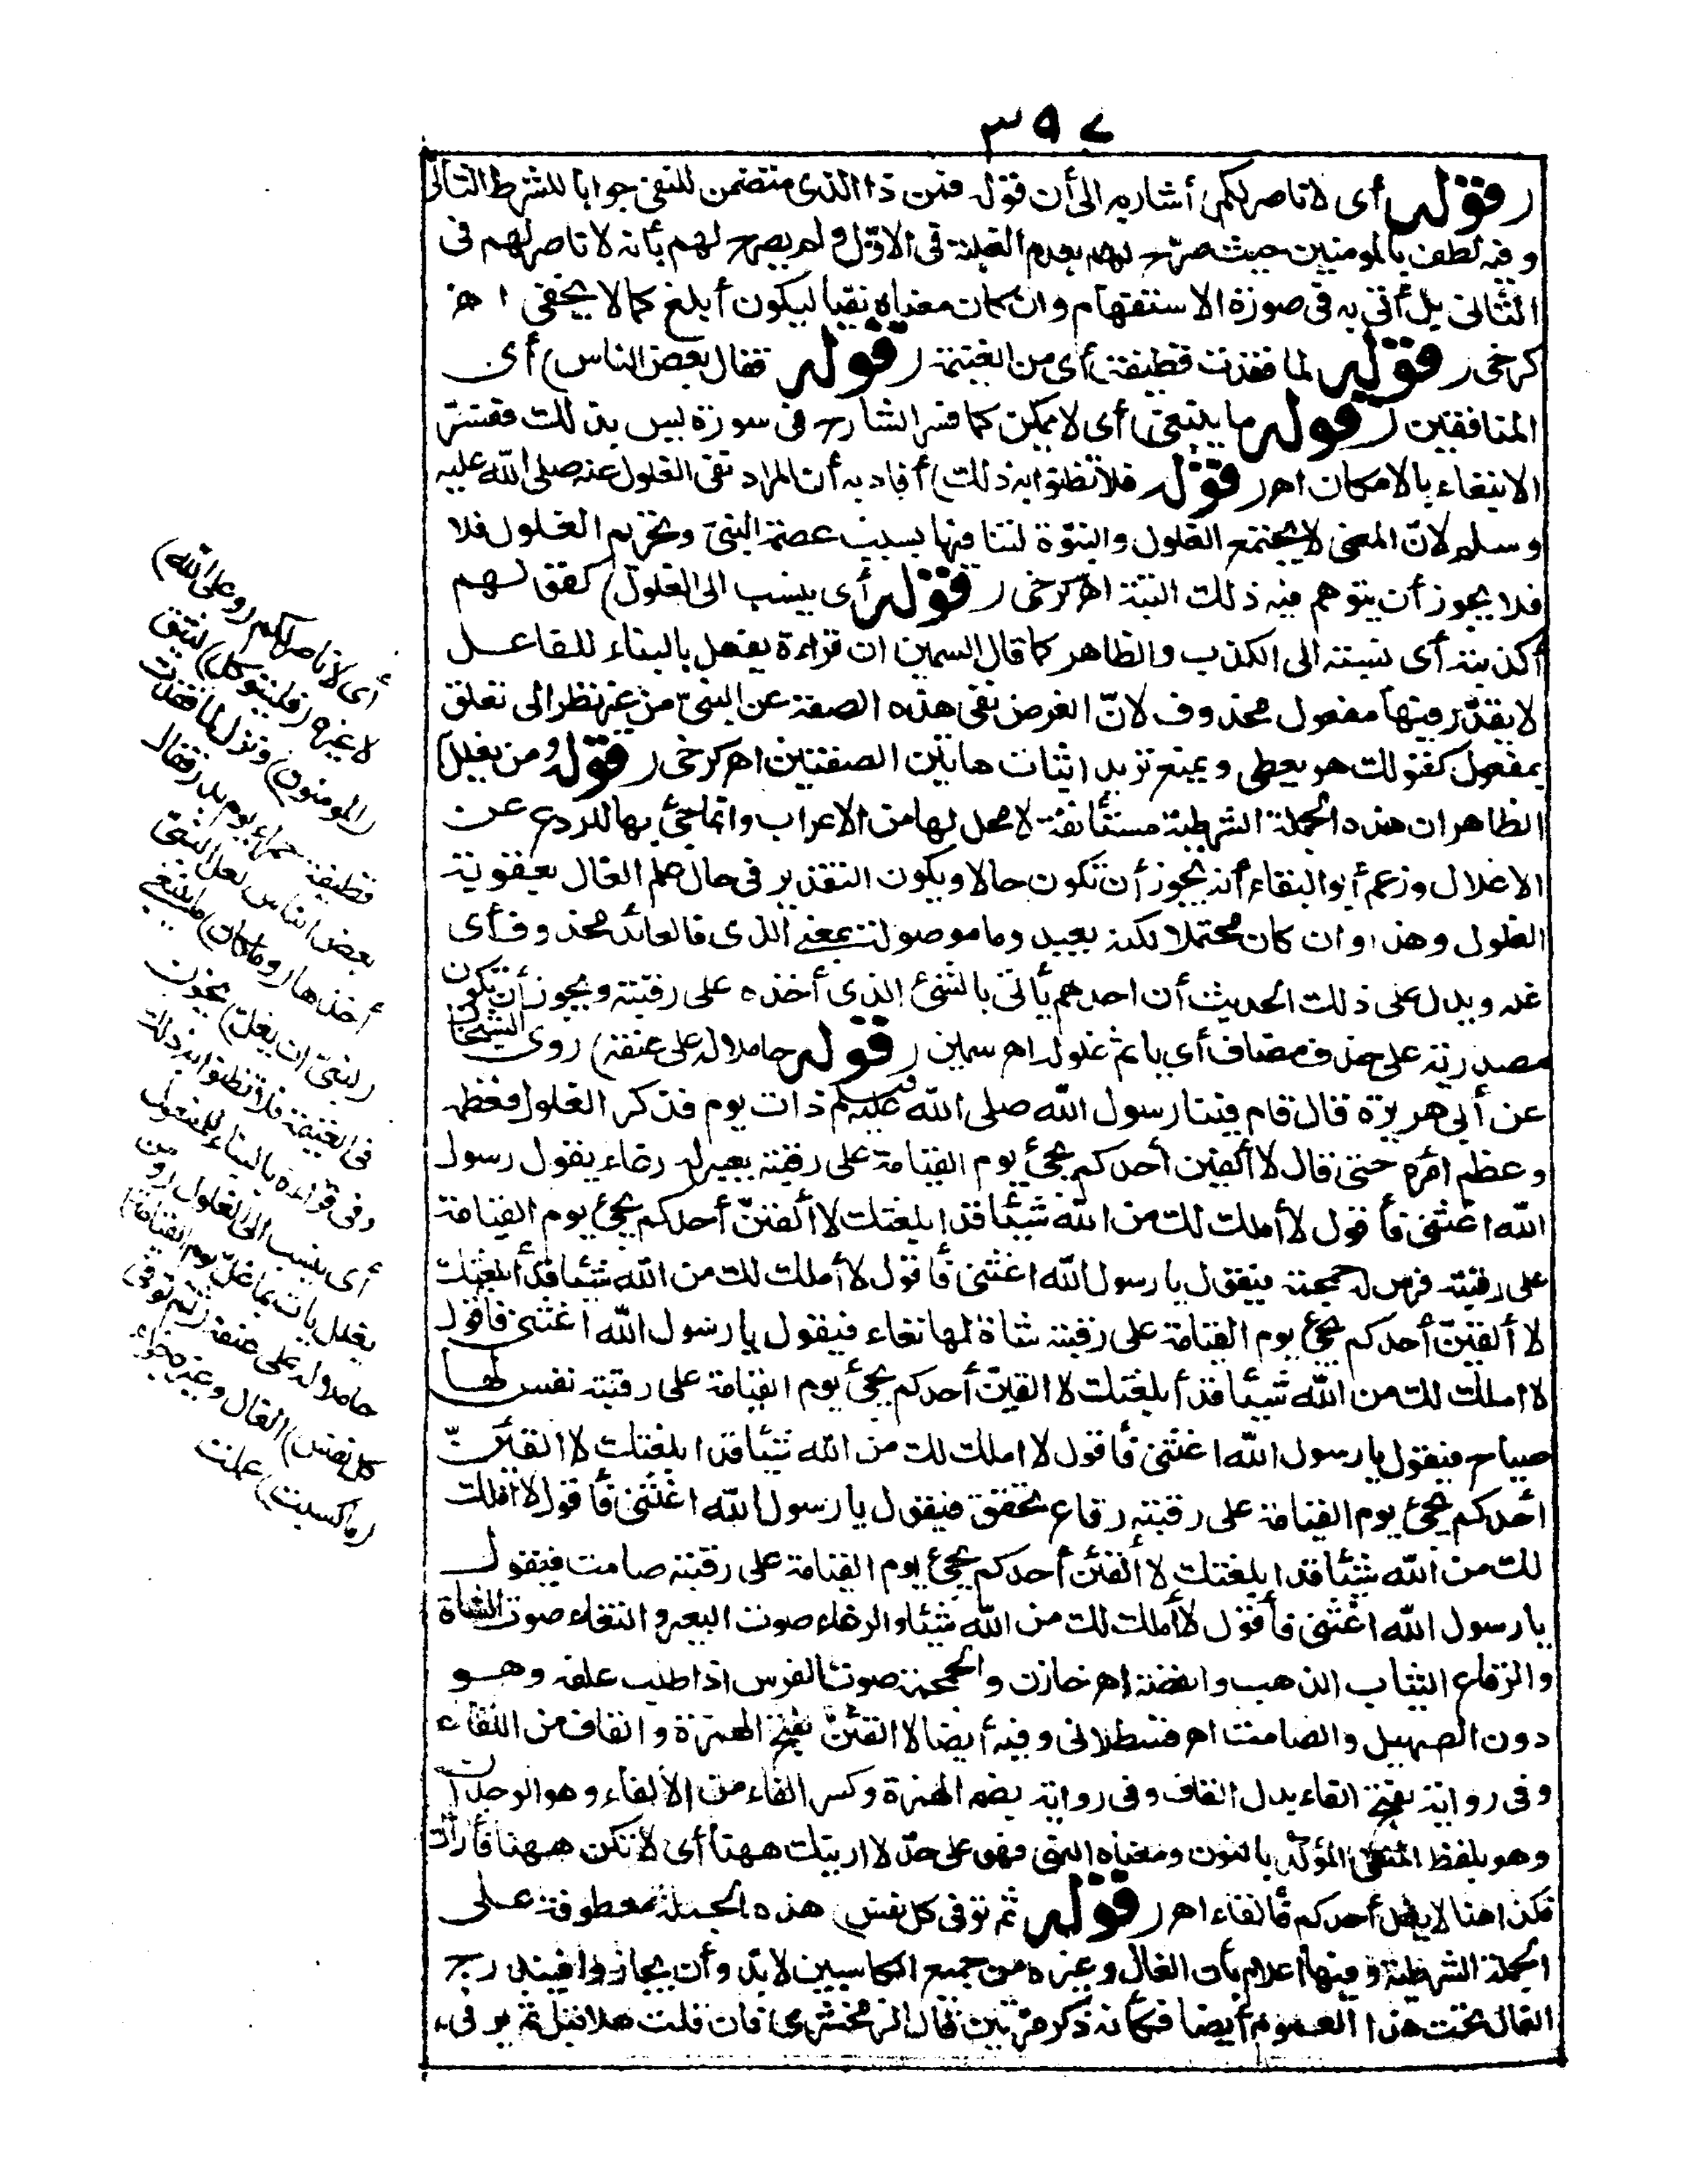 ٣٩٧
(قوله أى لا ناصر لكم) أشار به الى أن قوله فمن ذا الذى متضمن للنفى جوابا للشرط الثانى
وفيه لطف بالمومنين حيث صرح لهم بعدم الغلبة فى الاوّل ولم يصرح لهم بأنه لا ناصر لهم فى
الثانى بل أتى به فى صورة الاستفهام وان كان معناه نفيا ليكون أبلغ كما لا يخفى اهـ
كرخى (قوله لما فقدت قطيفة) أى من الغنيمة (قوله فقال بعض الناس) أى
المنافقين (قوله ما ينبغى) أى لا يمكن كما فسر الشارح فى سورة يس بذلك ففسّر
الانبغاء بالامكان اهـ (قوله فلا تظنوا به ذلك) أفاد به أن المراد نفى الغلول عنه صلى الله عليه
وسلم لانّ المعنى لا يجتمع الغلول والنبوّة لتنافيها بسبب عصمة النبىّ وتحريم الغلول فلا
فلا يجوز أن يتوهم فيه ذلك البتة اهـ كرخى (قوله أى ينسب الى الغلول) كقولهم
أكذبته أى نسبته الى الكذب والظاهر كما قال السمين ان قراءة يغل بالبناء للفاعل
لا يقدّر فيها مفعول محذوف لانّ الغرض نفى هذه الصفة عن النبىّ من غير نظر الى تعلق
بمفعول كقولك هو يعطى ويمنع تريد اثبات هاتين الصفتين اهـ كرخى (قوله ومن يغلل)
الظاهر ان هذه الجملة الشرطية مستأنفة لا محل لها من الاعراب وانما جئ بها للردع عن
الاغلال وزعم أبو البقاء أنه يجوز أن تكون حالا ويكون التقدير فى حال علم الغال بعقوبة
الغلول وهذا وان كان محتملا لكنه بعيد وما موصولة بمعنى الذى فالعائد محذوف أى
غله ويدل على ذلك الحديث أن احدهم يأتى بالشئ الذى أخذه على رقبته ويجوز أن تكون
مصدرية على حذف مضاف أى باثم غلوله اهـ سمين (قوله حاملا له على عنقه) روى الشيخان
عن أبى هريرة قال قام فينا رسول الله صلى الله عليه وسلم ذات يوم فذكر الغلول فعظمه
وعظم امره حتى قال لا ألفين أحدكم يجئ يوم القيامة على رقبته بعير له رغاء يقول رسول
الله اغثنى فأقول لا أملك لك من الله شيئا قد ابلغتك لا ألفينّ أحدكم يجئ يوم القيامة
على رقبته فرس له حمحمة فيقول يا رسول الله اغثنى فأقول لا أملك لك من الله شيئا قد أبلغتك
لا ألفينّ أحدكم يجئ يوم القيامة على رقبته شاة لها ثغاء فيقول يا رسول الله اغثنى فاقول
لا املك لك من الله شيئا قد أبلغتك لا الفينّ أحدكم يجئ يوم القيامة على رقبته نفس لها
صياح فيقول يا رسول الله اغثنى فأقول لا املك لك من الله شيئا قد ابلغتك لا الفينّ
أحدكم يجئ يوم القيامة على رقبته رقاع تخفق فيقول يا رسول الله اغثنى فأقول لا املك
لك من الله شيئا قد ابلغتك لا ألفين أحدكم يجئ يوم القيامة على رقبته صامت فيقول
يا رسول الله اغثنى فأقول لا أملك لك من الله شيئا والرغاء صوت البعير والثغاء صوت الشاة
والرقاع الثياب الذهب والفضة اهـ خازن والحمحمة صوت الفرس اذا طلب علفه وهو
دون الصهيل والصامت اهـ قسطلانى وفيه أيضا لا القينّ بفتح الهمزة والقاف من اللقاء
وفى رواية بفتح الفاء بدل القاف وفى رواية بضم الهمزة وكسر الفاء من الألفاء وهو الوجدان
وهو بلفظ المنفى المؤكد بالنون ومعناه النهى فهو على حدّ لا اريتك ههنا أى لا تكن ههنا فأراك
فكذا هنا لا يغل أحدكم فألفاه اهـ (قوله ثم توفى كل نفس) هذه الجملة معطوفة على
الجملة الشرطية وفيها اعلام بأن الغال وغيره من جميع الكاسبين لا بدّ وأن يجازوا فيندرج
الغال تحت هذا العموم أيضا فكأنه ذكر مرّتين قال الزمخشرى فان قلت هلا قيل ثم يوفى
أى لا ناصر لكم (وعلى الله)
لا غيره (فليتوكل) ليثق
(المومنون) ونزل لما فقدت
قطيفة حمراء يوم بدر فقال
بعض الناس لعل النبى
أخذها (وما كان) ما ينبغى
(لنبىّ ان يغلّ) يخون
فى الغنيمة فلا تظنوا به ذلك
وفى قراءة بالبناء للمفعول
أى ينسب الى الغلول (ومن
يغلل يأت بما غلّ يوم القيامة)
حاملا له على عنقه (ثم توفى
كل نفس) الغال وغيره جزاء
(ما كسبت) عملت